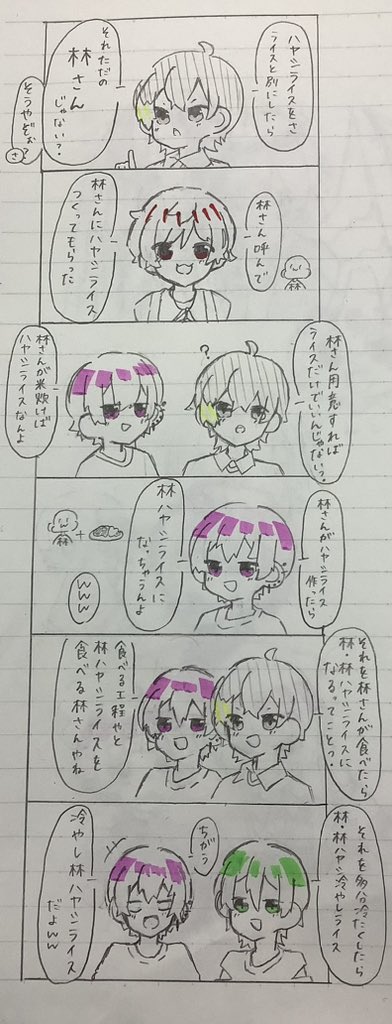 ハヤシライスをさ
ライスと別にしたら
それただの
林さん
じゃない？
そうやぞぉ？
さ
林さん呼んで
林
林さんにハヤシライス
つくってもらった
林さん用意すれば
ライスだけでいいんじゃない？
？
林さんが米炊けば
ハヤシライスなんよ
林さんがハヤシライス
作ったら
林ハヤシライスに
なっちゃうんよ
林
+
www
それを林さんが食べたら
林・林ハヤシライスに
なるってこと？
食べる工程やと
林ハヤシライスを
食べる林さんやね
それを多分冷たくしたら
林・林ハヤシ冷やしライス
ちがう
冷やし林ハヤシライス
だよww